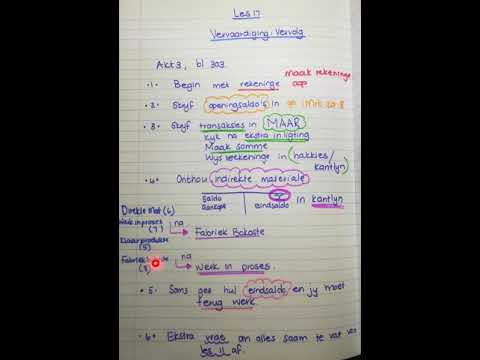 Les 17
Vervaardiging: Vervolg
Akt 3, bl 303.
·1· Begin met rekeninge maak rekeninge oop
·2· Skryf openingsaldo's in op 1 Mrt 20.8
·3· Skryf transaksies in MAAR
kyk na ekstra inligting
Maak somme
Wys berekeninge in (hakkies/
kantlyn)
·4· Onthou indirekte materiale
Saldo
Gekoop eindsaldo in kantlyn
Direkte Mat (6)
Werk in proses (7) na
Fabriek Bokoste
Klaarprodukte (5)
Fabriek (8) na
Werk in proses.
·5· Soms gee hul eindsaldo en jy moet
terug werk.
·6· Ekstra vrae om alles saam te vat
les 17 af.